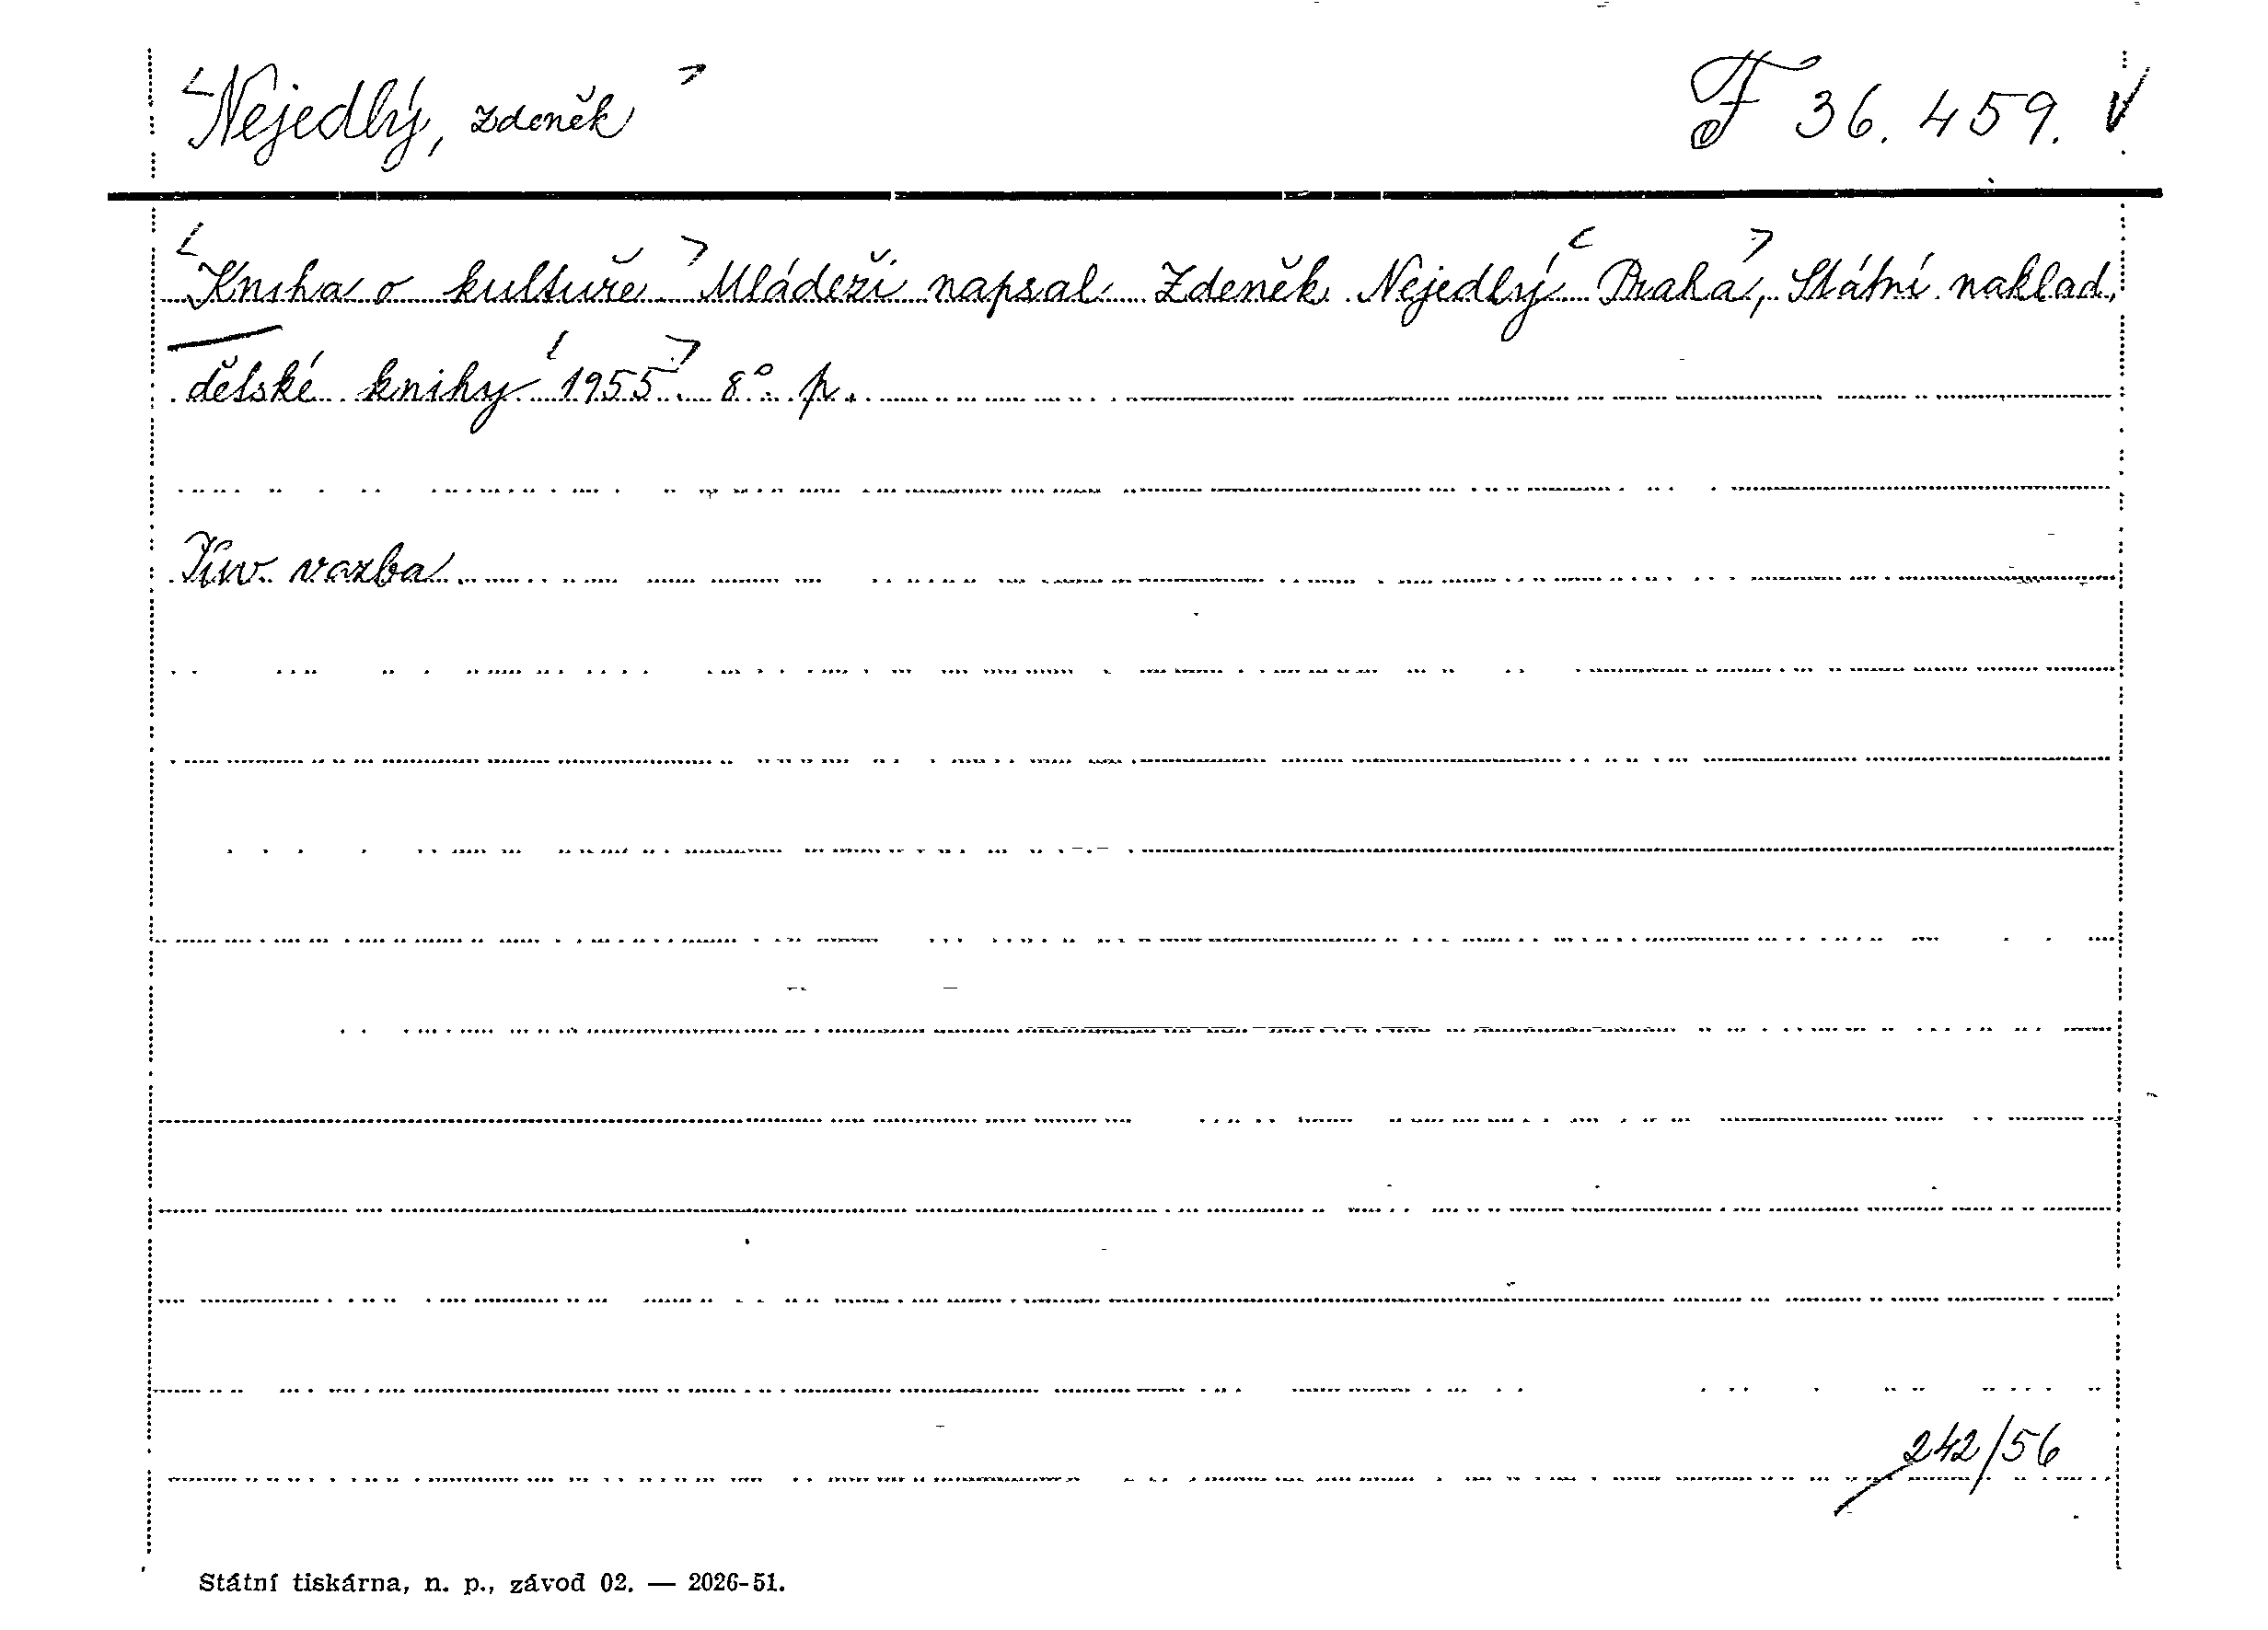 Nejedlý, Zdeněk F 36.459.
Kniha o kultuře. Mládeži napsal Zdeněk Nejedlý Praha, Státní naklad.
dětské knihy 1955. 8° p.
Pův. vazba.
242/56
Státní tiskárna, n. p., závod 02. — 2026-51.